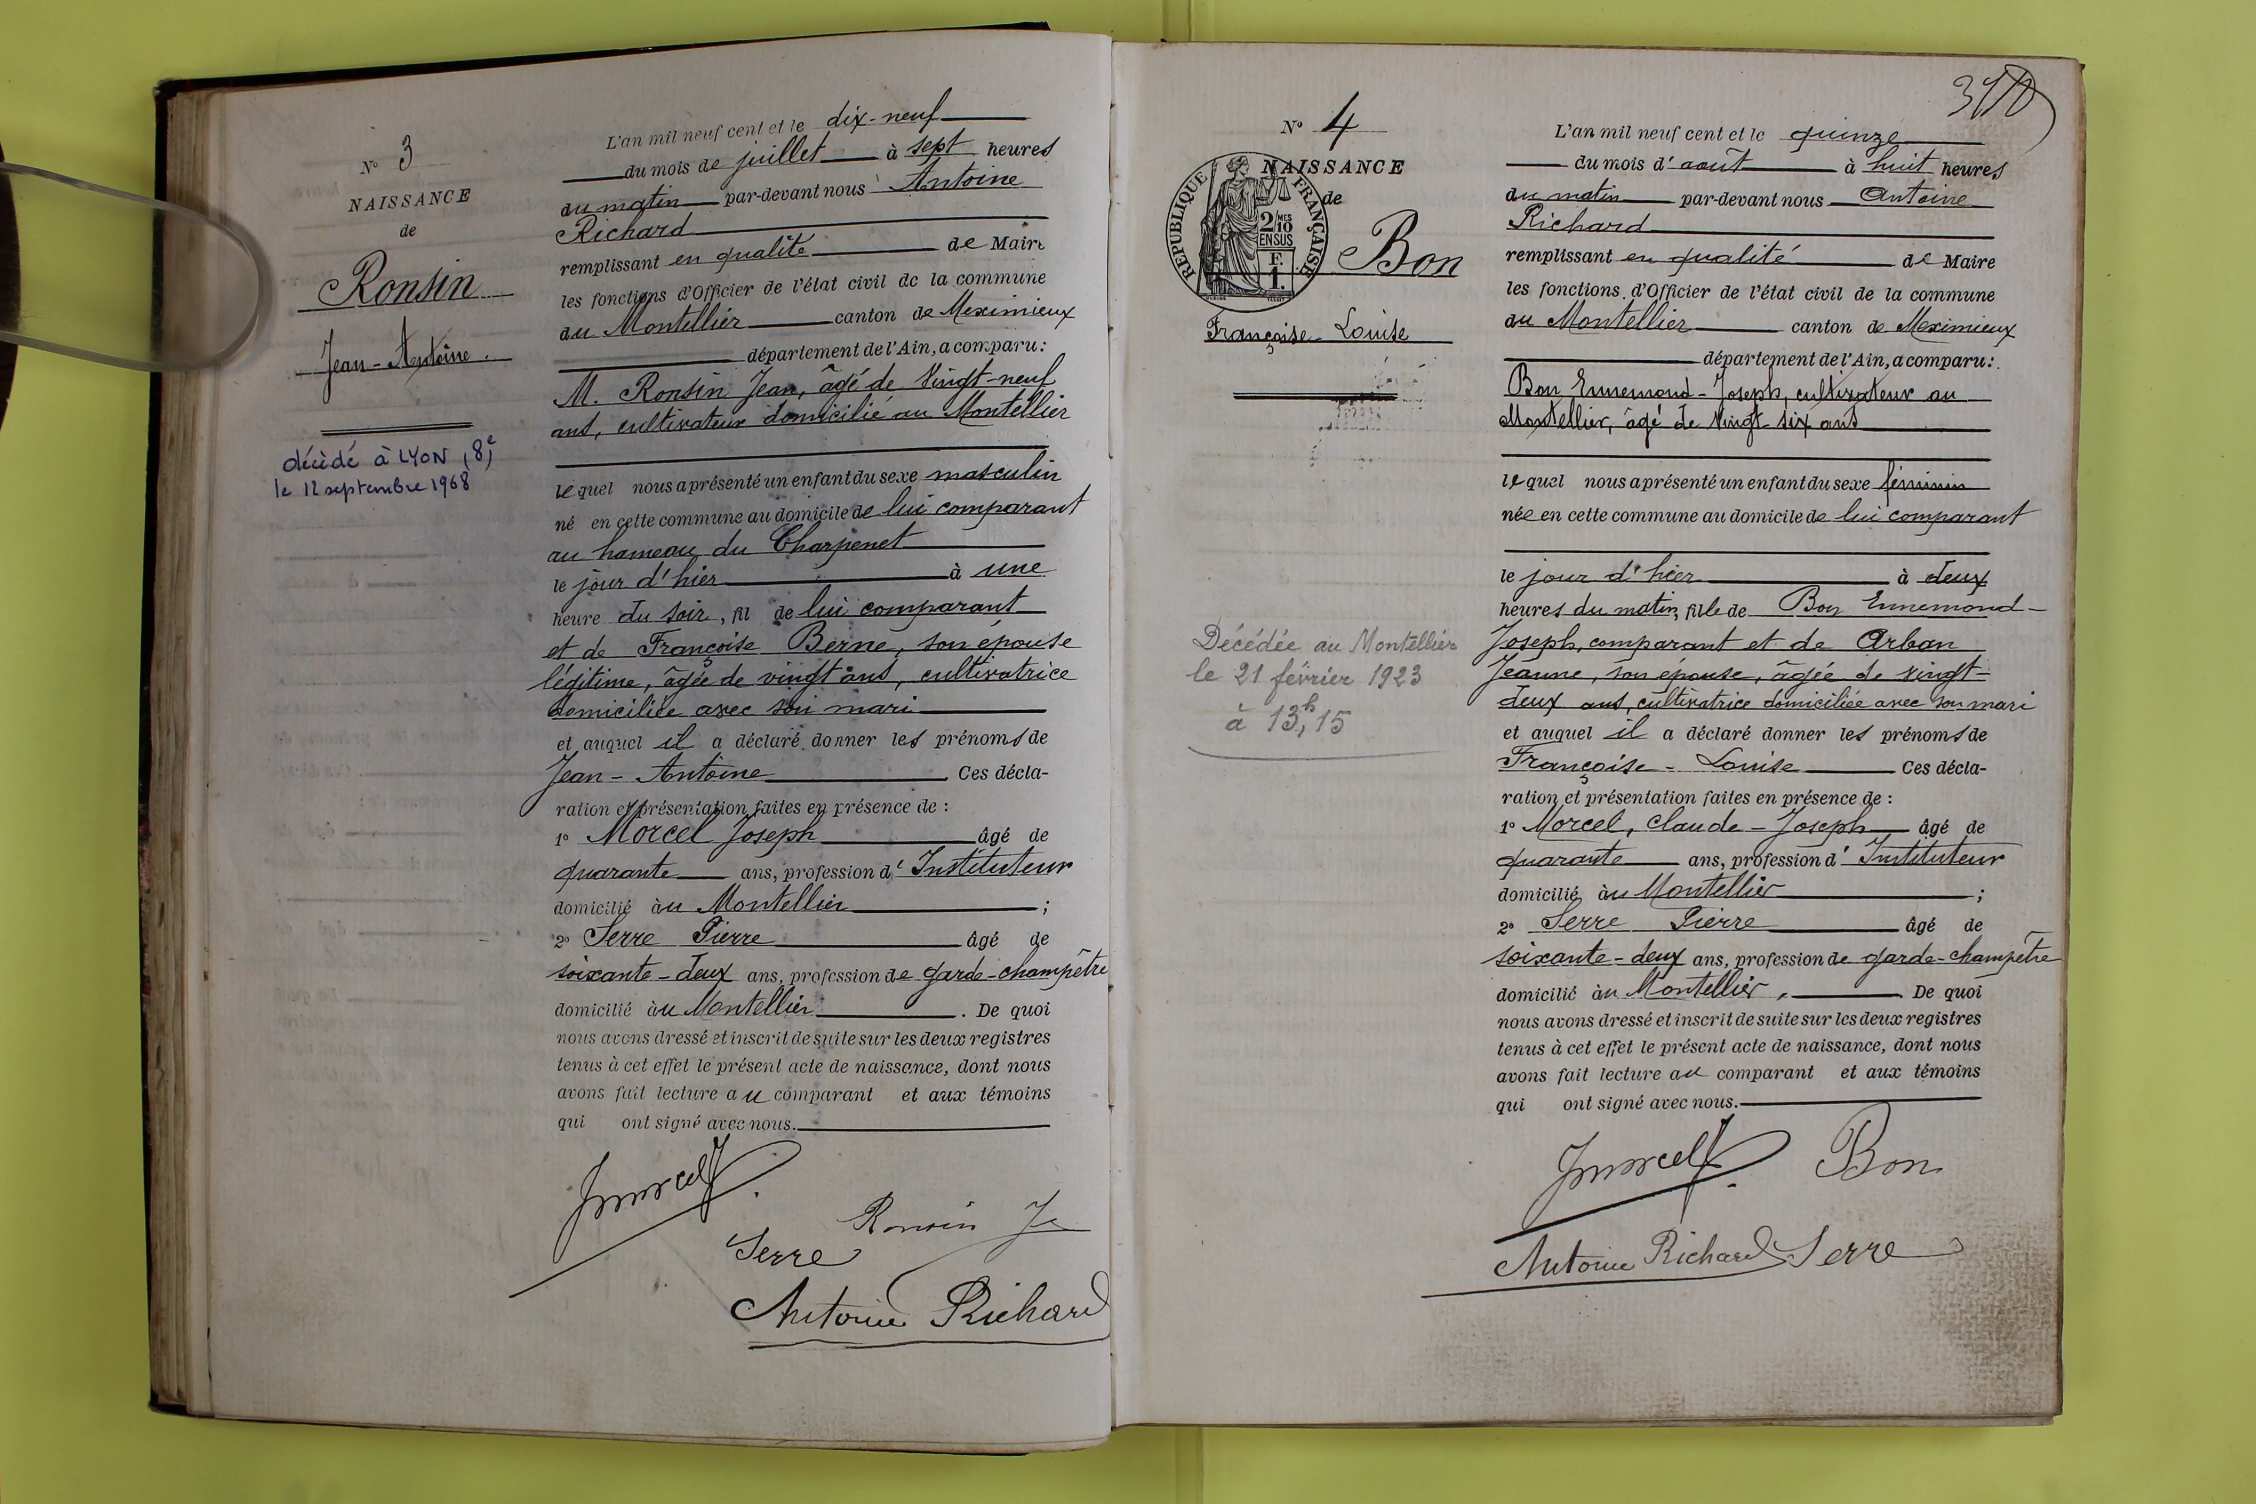 N° 3
NAISSANCE
de
Ronsin
Jean - Antoine.
décédé à LYON (8e)
le 12 septembre 1968
L'an mil neuf cent et le dix-neuf
du mois de juillet à sept heures
du matin par-devant nous Antoine
Richard
remplissant en qualité de Maire
les fonctions d'Officier de l'état civil de la commune
du Montellier canton de Meximieux
département de l'Ain, a comparu:
M. Ronsin Jean, âgé de vingt-neuf
ans, cultivateur domicilié au Montellier
lequel nous a présenté un enfant du sexe masculin
né en cette commune au domicile de lui comparant
au hameau du Charpenet
le jour d'hier à une
heure du soir, fil de lui comparant
et de Françoise Berne, son épouse
légitime, âgée de vingt ans, cultivatrice
domiciliée avec son mari
et auquel il a déclaré donner les prénoms de
Jean - Antoine Ces décla-
ration et présentation faites en présence de :
1° Morcel Joseph âgé de
quarante ans, profession d'Instituteur
domicilié àu Montellier ;
2° Serre Pierre âgé de
soixante-deux ans, profession de garde-champêtre
domicilié àu Montellier . De quoi
nous avons dressé et inscrit de suite sur les deux registres
tenus à cet effet le présent acte de naissance, dont nous
avons fait lecture au comparant et aux témoins
qui ont signé avec nous.
Jmorcel
Ronsin Je
Serre
Antoine Richard
N° 4
NAISSANCE
de
RÉPUBLIQUE FRANÇAISE
2/10MES
EN SUS
F.
1.
Bon
Françoise - Louise
Décédée au Montellier
le 21 février 1923
à 13h,15
L'an mil neuf cent et le quinze
du mois d'août à huit heures
du matin par-devant nous Antoine
Richard
remplissant en qualité de Maire
les fonctions d'Officier de l'état civil de la commune
du Montellier canton de Meximieux
département de l'Ain, a comparu:
Bon Ennemond - Joseph, cultivateur au
Montellier, âgé de vingt-six ans
lequel nous a présenté un enfant du sexe féminin
née en cette commune au domicile de lui comparant
le jour d'hier à deux
heures du matin, fille de Bon Ennemond -
Joseph, comparant et de Arban
Jeanne, son épouse, âgée de vingt-
deux ans, cultivatrice domiciliée avec son mari
et auquel il a déclaré donner les prénoms de
Françoise - Louise Ces décla-
ration et présentation faites en présence de :
1° Morcel, Claude - Joseph âgé de
quarante ans, profession d'Instituteur
domicilié àu Montellier ;
2° Serre Pierre âgé de
soixante-deux ans, profession de garde-champêtre
domicilié àu Montellier, . De quoi
nous avons dressé et inscrit de suite sur les deux registres
tenus à cet effet le présent acte de naissance, dont nous
avons fait lecture au comparant et aux témoins
qui ont signé avec nous.
Jmorcel Bon
Antoine Richard Serre